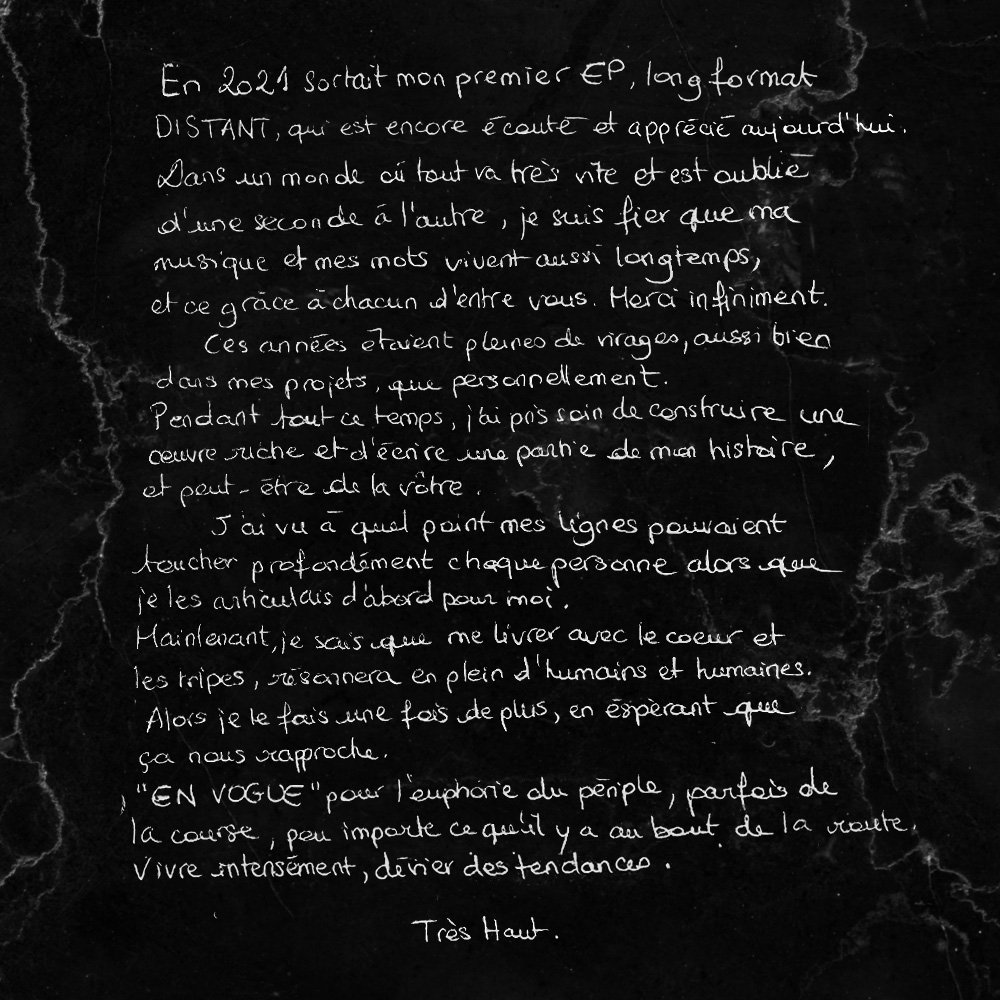 En 2021 sortait mon premier EP, long format
DISTANT, qui est encore écouté et apprécié aujourd'hui.
Dans un monde où tout va très vite et est oublié
d'une seconde à l'autre, je suis fier que ma
musique et mes mots vivent aussi longtemps,
et ce grâce à chacun d'entre vous. Merci infiniment.
Ces années étaient pleines de virages, aussi bien
dans mes projets, que personnellement.
Pendant tout ce temps, j'ai pris soin de construire une
oeuvre riche et d'écrire une partie de mon histoire,
et peut-être de la vôtre.
J'ai vu à quel point mes lignes pouvaient
toucher profondément chaque personne alors que
je les articulais d'abord pour moi.
Maintenant, je sais que me livrer avec le coeur et
les tripes, résonnera en plein d'humains et humaines.
Alors je le fais une fois de plus, en éspérant que
ça nous rapproche.
"EN VOGUE" pour l'euphorie du périple, parfois de
la course, peu importe ce qu'il y a au bout de la route.
Vivre intensément, dévier des tendances.
Très Haut.